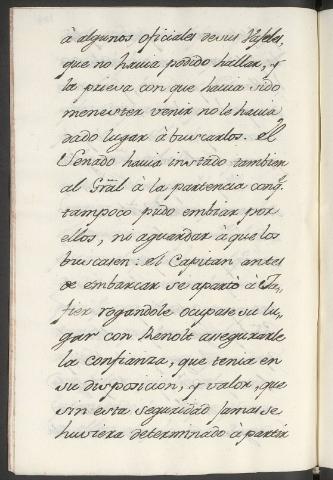 à algunos oficiales de sus Vaxeles,
que no havia podido hallar, y
la priesa con que havia sido
menester venir no le havia
dado lugar à buscarlos. El
Senado havia instado tambien
al Gral à la partencia conq.
tampoco pudo embiar por
ellos, ni aguardar à que los
buscasen: el Capitan antes
de embarcar se apartò à Ja-
fier rogandole ocupase su lu-
gar con Renolt assegurarle
la confianza, que tenia en
su disposicion, y valor, que
sin esta seguridad jamas se
huviera determinado à partir